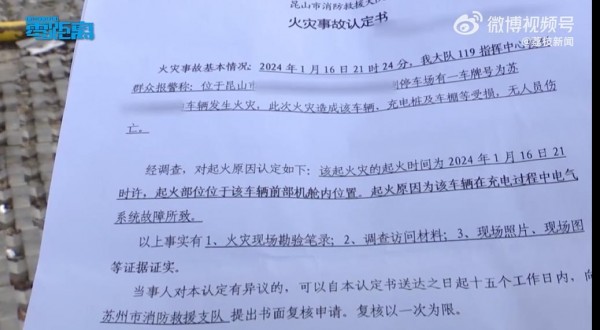 零距离
微博视频号
@荔枝新闻
昆山市消防救援
火灾事故认定书
火灾事故基本情况：2024年1月16日21时24分，我大队119指挥中心接到
群众报警称：位于昆山 停车场有一车牌号为苏
车辆发生火灾，此次火灾造成该车辆、充电桩及车棚等受损，无人员伤
亡。
经调查，对起火原因认定如下：该起火灾的起火时间为2024年1月16日21
时许，起火部位位于该车辆前部机舱内位置。起火原因为该车辆在充电过程中电气
系统故障所致。
以上事实有1、火灾现场勘验笔录；2、调查访问材料；3、现场照片、现场图
等证据证实。
当事人对本认定有异议的，可以自本认定书送达之日起十五个工作日内，向
苏州市消防救援支队提出书面复核申请。复核以一次为限。